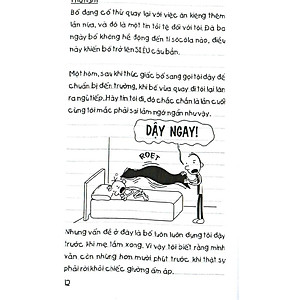 Thứ Ngày
Bố đang cố thử quay lại với việc ăn kiêng thêm
lần nữa, và đó là một tin tồi tệ đối với tôi. Đã ba
ngày bố không hề động đến tí sôcôla nào, điều
này khiến bố trở lên SIÊU cáu bẳn.
Một hôm, sau khi thức giấc bố sang gọi tôi dậy để
chuẩn bị đến trường, khi bố vừa quay đi tôi lại lăn
ra ngủ tiếp. Hãy tin tôi đi, đó chắc chắn là lần cuối
cùng tôi mắc phải sai lầm ngớ ngẩn như vậy.
DẬY NGAY!
POET
Nhưng vấn đề ở đây là bố luôn luôn dựng tôi dậy
trước khi mẹ tắm xong. Vì vậy tôi biết rằng mình
vẫn còn những hơn mười phút trước khi thật sự
phải rời khỏi chiếc giường ấm áp.
12